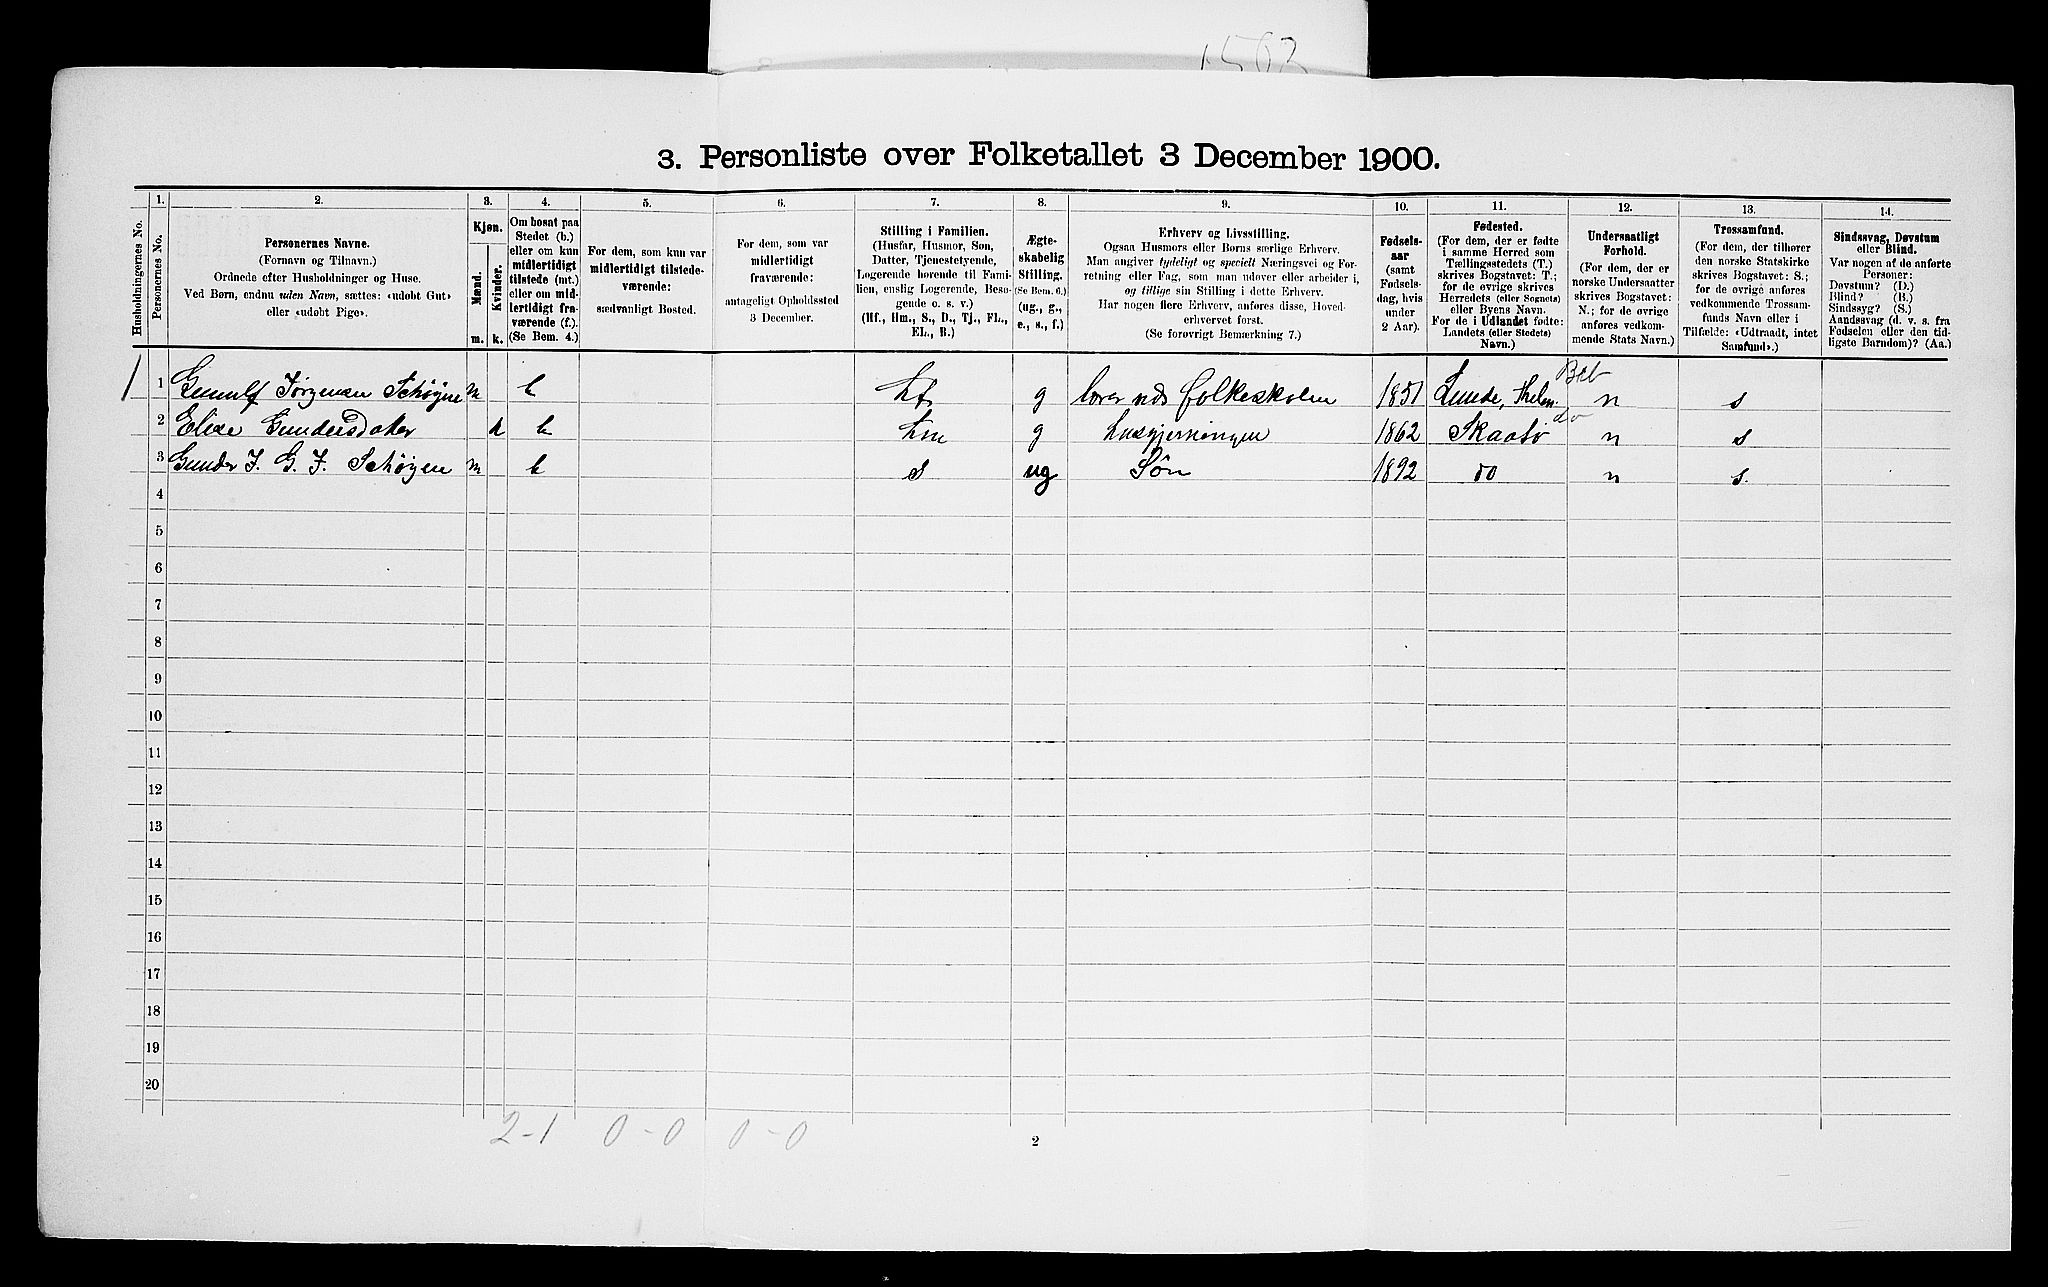 1503
3. Personliste over Folketallet 3 December 1900.
Husholdningernes No.
1.
Personernes No.
2.
Personernes Navne.
(Fornavn og Tilnavn.)
Ordnede efter Husholdninger og Huse.
Ved Børn, endnu uden Navn, sættes: «udøbt Gut»
eller «udøbt Pige».
3.
Kjøn.
Mænd.
Kvinder.
m. k.
4.
Om bosat paa
Stedet (b.)
eller om kun
midlertidigt
tilstede (mt.)
eller om mid-
lertidigt fra-
værende (f.).
(Se Bem. 4.)
5.
For dem, som kun var
midlertidigt tilstede-
værende:
sædvanligt Bosted.
6.
For dem, som var
midlertidigt
fraværende:
antageligt Opholdssted
3 December.
7.
Stilling i Familien.
(Husfar, Husmor, Søn,
Datter, Tjenestetyende,
Logerende hørende til Fami-
lien, enslig Logerende, Beso-
gende o. s. v.)
(Hf., Hm., S., D., Tj., FL.,
EL., B.)
8.
Ægte-
skabelig
Stilling.
(Se Bem. 6.)
(ug., g.,
e., s., f.)
9.
Erhverv og Livsstilling.
Ogsaa Husmors eller Børns særlige Erhverv.
Man angiver tydeligt og specielt Næringsvei og For-
retning eller Fag, som man udøver eller arbeider i,
og tillige sin Stilling i dette Erhverv.
Har nogen flere Erhverv, anføres disse, Hoved-
erhvervet først.
(Se forøvrigt Bemærkning 7.)
10.
Fødsels-
aar
(samt
Fødsels-
dag, hvis
under
2 Aar).
11.
Fødested.
(For dem, der er fødte
i samme Herred som
Tællingsstedets (T.)
skrives Bogstavet: T.;
for de øvrige skrives
Herredets (eller Sognets)
eller Byens Navn.
For de i Udlandet fødte:
Landets (eller Stedets)
Navn.)
12.
Undersaatligt
Forhold.
(For dem, der er
norske Undersaatter
skrives Bogstavet:
N.; for de øvrige
anføres vedkom-
mende Stats Navn.)
13.
Trossamfund.
(For dem, der tilhører
den norske Statskirke
skrives Bogstavet: S.;
for de øvrige anføres
vedkommende Trossam-
funds Navn eller i
Tilfælde: «Udtraadt, intet
Samfund».)
14.
Sindssvag, Døvstum
eller Blind.
Var nogen af de anførte
Personer:
Døvstum? (D.)
Blind? (B.)
Sindssyg? (S.)
Aandssvag (d. v. s. fra
Fødselen eller den tid-
ligste Barndom)? (Aa.)
1 1 Gunulf Jørgensen Schøgne m b hf. g lærer ved folkeskolen 1851 Lunde, Thelm. Beb n s
2 Elise Gundersdatter k b hm g husgjerningen 1862 Skaatø do n s
3 Gunder J. G. J. Schøgen m b s ug Søn 1892 do n s.
4
5
6
7
8
9
10
11
12
13
14
15
16
17
18
19
20
2-1 0-0 0-0
2